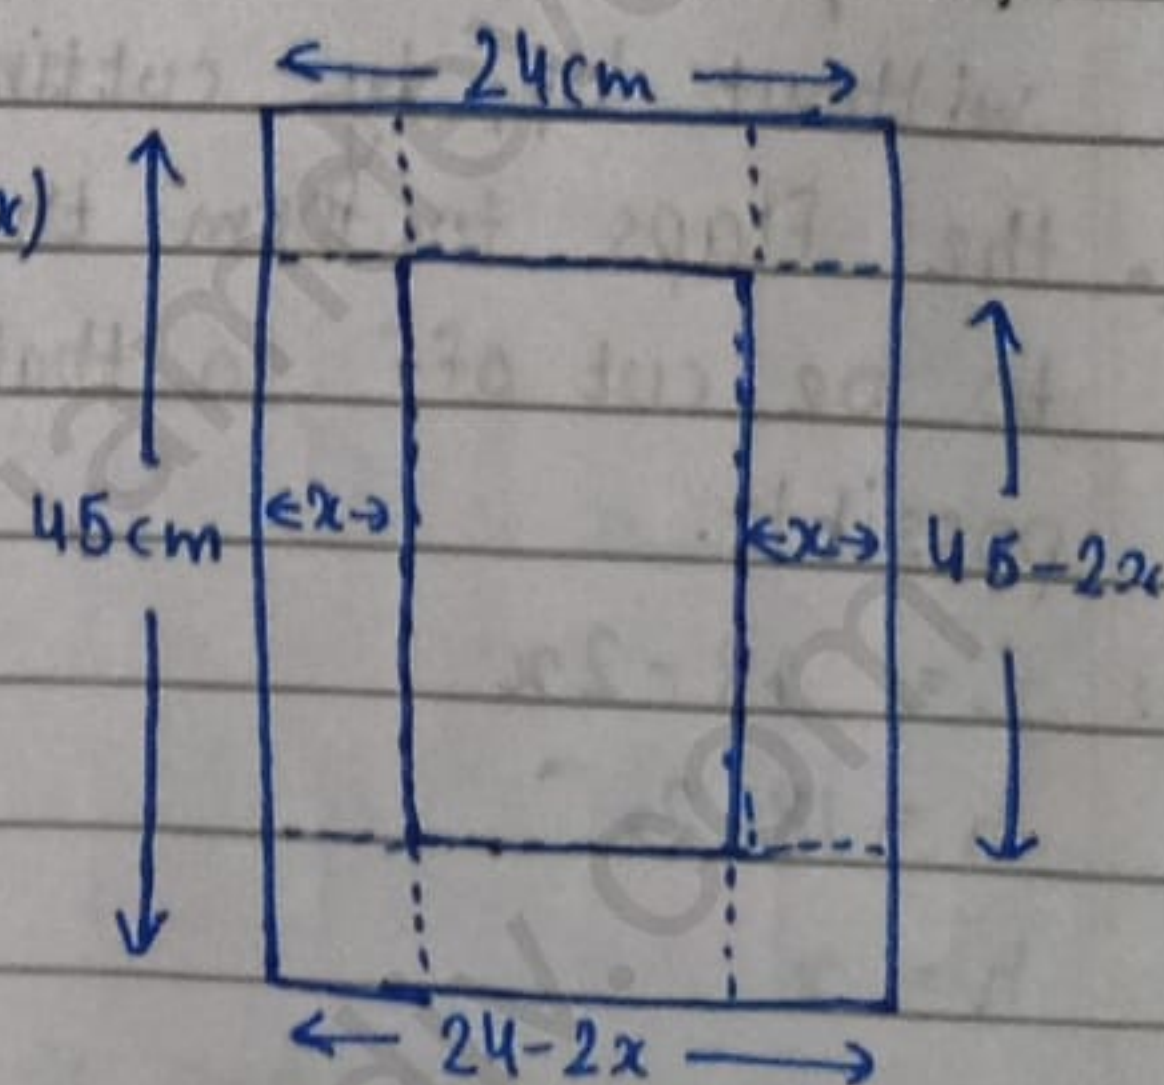 24cm
x)
45cm
←x→
←x→
45-2x
24-2x